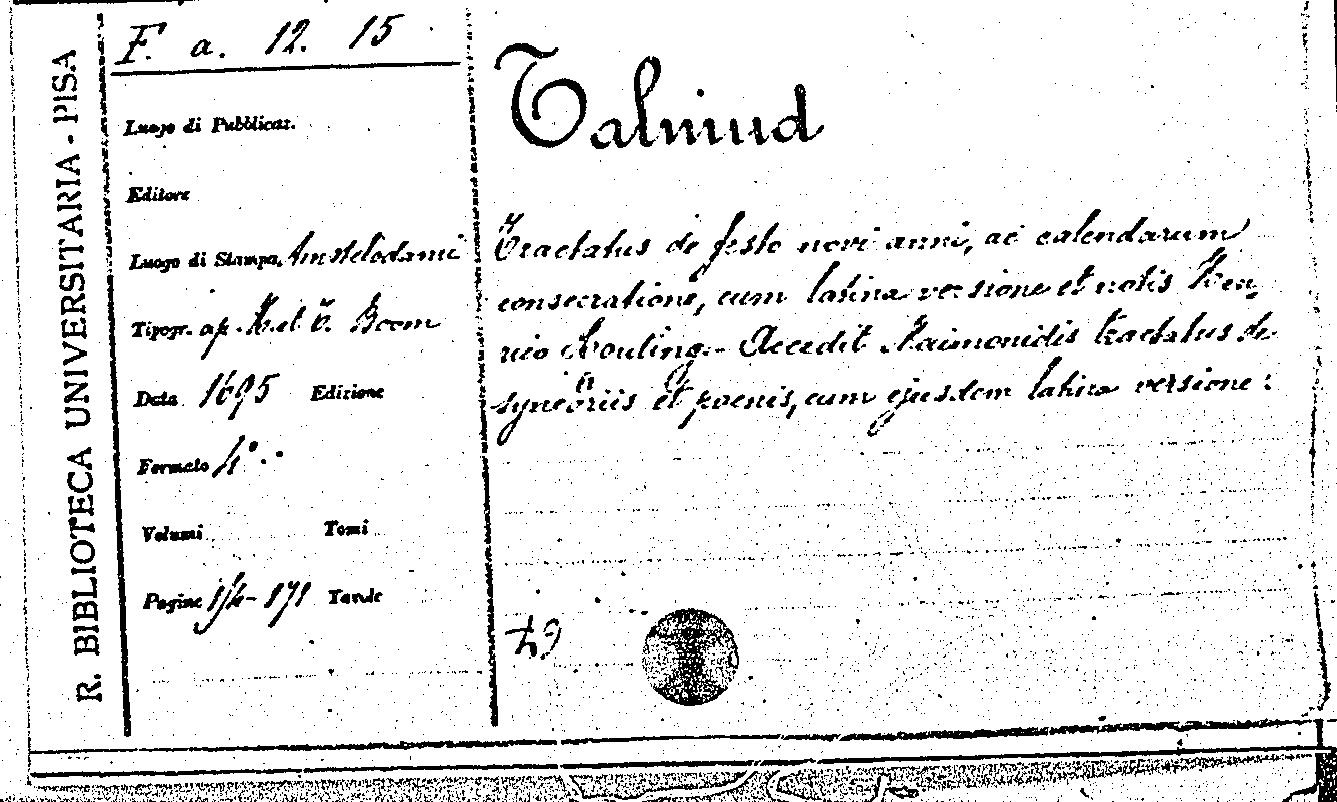 R. BIBLIOTECA UNIVERSITARIA - PISA
F. a. 12. 15
Luogo di Pubblicaz.
Editore
Luogo di Stampa Amstelodami
Tipogr. ap. H. et V. Boom
Data 1695 Edizione
Formato 4°..
Volumi Tomi
Pagine 171 Tavole
Talmud
Tractatus de festo novi anni, ac calendarum
consecratione, cum latina versione et notis Hen,
rici Houting. - Accedit Maimonidis tractatus de
synedriis et poenis, cum ejusdem latina versione: